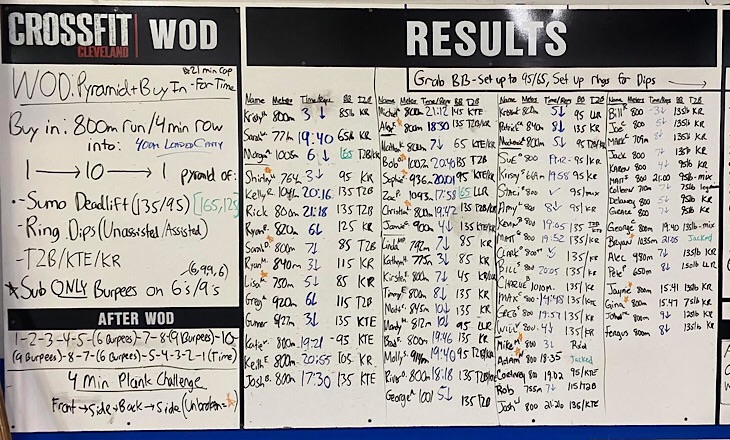 CROSSFIT CLEVELAND WOD
21 min cap
WOD: Pyramid + Buy In - For Time
Buy in: 800m run/4 min row
into: 400m Loaded Carry
1 → 10 → 1 Pyramid of:
- Sumo Deadlift (135/95) [165/125
- Ring Dips (Unassisted/Assisted)
- T2B/KTE/KR
(6,9,9,6)
* Sub ONLY Burpees on 6's/9's
AFTER WOD
1-2-3-4-5-(6 Burpees)-7-8-(9 Burpees)-10-
(9 Burpees)-8-7-(6 Burpees)-5-4-3-2-1 (Time)
4 Min Plank Challenge
Front → Side → Back → Side (Unbroken =
RESULTS
Grab BB - Set up to 95/65, Set up rings for Dips →
Name Meter Time/Reps BB T2B
800m 3↓ 85lb KR
Sarah 771m 19:40 65lb KR
Morgan 1005m 6↓ 65 T2B/KR
Shirley 764m 3↓ KR
Kelly 104m 20:16 135 T2B
Rick 800m 21:18 135 T2B
Ryan 820m 6↓ 125 KR
Sarah 800m 7↓ 85 T2B
Ryan 840m 3↓ 115 KR
Lisa 750m 5↓ 85 KR
Greg 920m 6↓ 115 T2B
Gunner 927m 3↓ 135 KTE
Katie 300m 19:21 95 KTE
Keith 800m 20:55 105 KR
Josh 800m 17:30 135 KTE
Name Meter Time/Reps BB T2B
Michel 800m 21:12 145 KTE
Alex 800m 18:50 135 T2B/KR
800m 7↓ 65 KTE/KR
Bob 1002m 20:46 85 T2B
Sophie 936m 20:01 95 KTE
Zac 1043m 17:58 165 LLR
Christian 800m 19:42 135 T2B/KR
James 900m 4↓ 135 KTE
Linda 792m 7↓ 85 KR
Kathy 775m 3↓ 85 KR
Kirsten 800m 7↓ 45 KR
Timmy 800m 8↓ 135 KR
Matt 845m 10↓ 135 KR
Mandy 812m 10↓ 95 LLR
Brad 800m 19:46 135 KR
Molly 914m 19:40 95 T2B/KTE
River 800m 18:18 135 T2B/KTE
George 1001 5↓ 135 T2B
Name Meter Time/Reps BB T2B
5↓ 95 LLR
Patrick 840m 8↓ 135 KR
5↓ 95 KR
Sue 800 95 KR
Krissy 669m 19:58 95 KR
Staci 800 ✓ 95/mix
Amy 800 8↓ 95 KR
Kevin 790 19:05 135
Matt 800 19:52 135 KR
Clark 800 135 KR
Bill 800 20:05 135 KR
1010m 135 KR
Mark 800 19:48 135 KTE
Greg 800 19:57 135 KR
Will 800 4↓ 135 KR
Mike 800 3↓ Rxd
Adam 800 18:35 Jacked
Courtney 800 19:02 95/KTE
Rob 755m 7↓ 115/T2B
Josh 800 21:20 135/KTE
Name Meters Time/Reps BB T2B
Bill 800 3↓ 135lb KR
Joe 800 5↓ 95lb KR
Mark 709m 8↓ 135lb KR
Jack 800 7↓ 135lb KR
Karen 800 4↓ 95lb KR
Matt 800 21:00 95lb-mix
Colleen 710m 7↓ 75lb
Delaney 800 5↓ 95lb KR
Grace 800 8↓ 95lb KR
George 800m 19:40 135lb-mix
Bryan 1035m 21:05 Jacked
Alec 980m 7↓ 135lb KR
Pete 650m 8↓ 150lb LLR
Jayne 800m 15:41 135lb KR
Gina 800m 15:47 75lb KR
John 800m 9↓ 125lb KR
Fergus 800m 8↓ 135lb KR